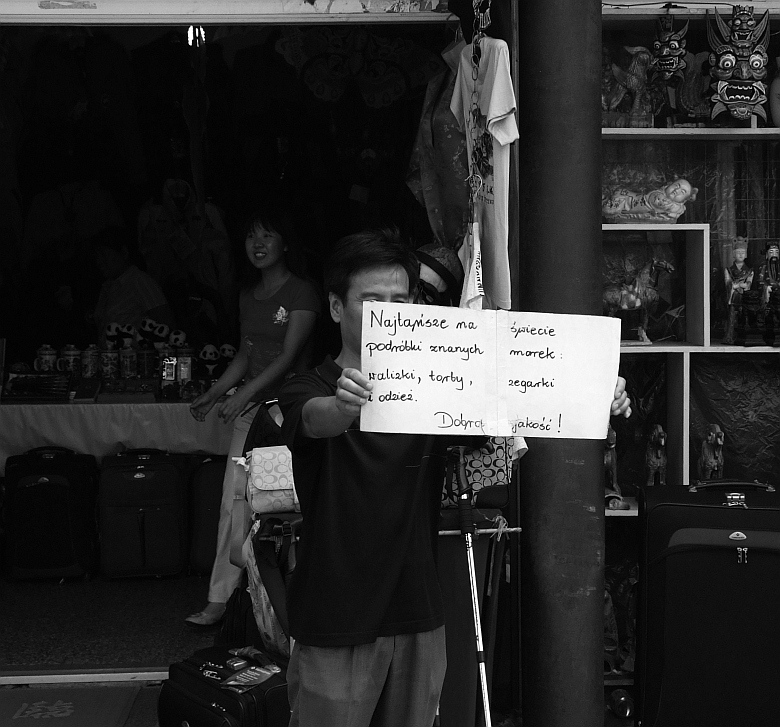 Najtańsze na świecie
podróbki znanych marek:
walizki, torby, zegarki
i odzież.
Dobra jakość!